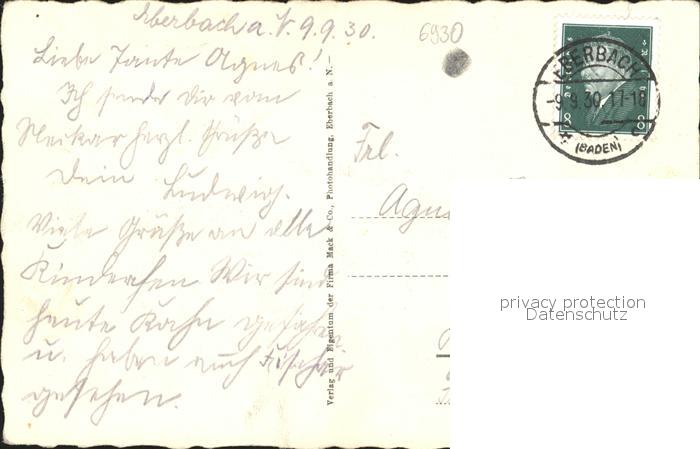 Eberbach a. N. 9.9.30.
6930
Liebe Tante Agnes!
Ich sende Dir vom
Neckar herzl. Grüße
Dein Ludwig.
Viele Grüße an alle
Kinderchen Wir sind
heute Kahn gefahren
u. haben auch Fischer
gesehen.
Verlag und Eigentum der Firma Mack & Co., Photohandlung, Eberbach a. N.
Frl.
EBERBACH
-9.9.30.17-18
(BADEN)
8 8
privacy protection
Datenschutz